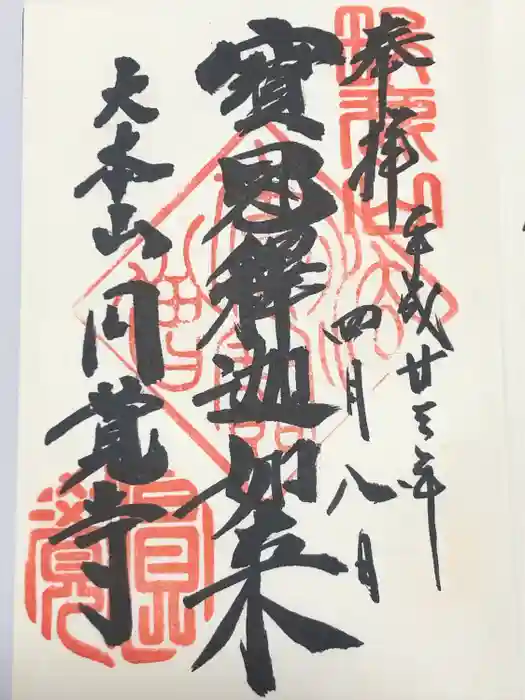 奉拝
平成廿三年
四月八日
寳冠釋迦如来
大本山円覚寺
圓覺